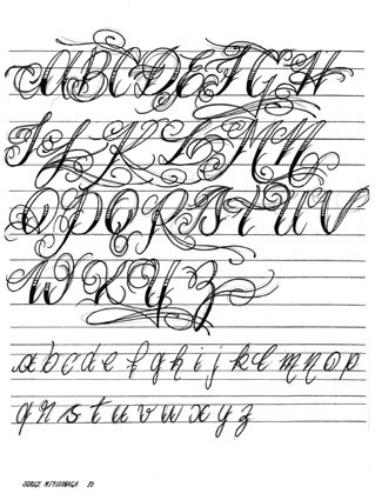 ABCDEFGH
IJKLMN
OPQRSTUV
WXYZ
abcdefghijklmnop
qrstuvwxyz
JORGE